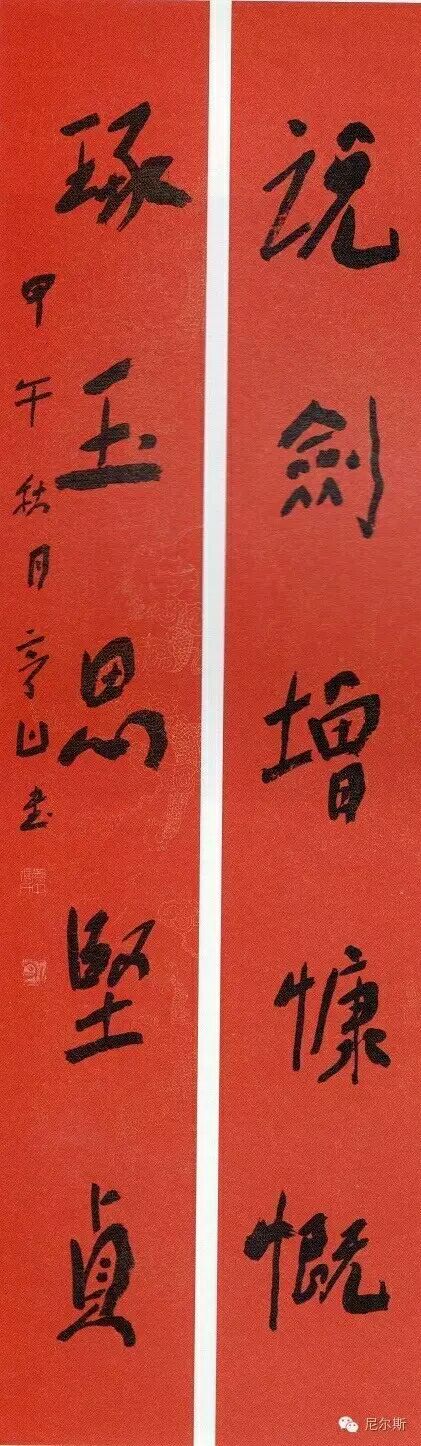 説劍增慷慨
琢玉思堅貞
甲午秋月亭山書
尼尔斯